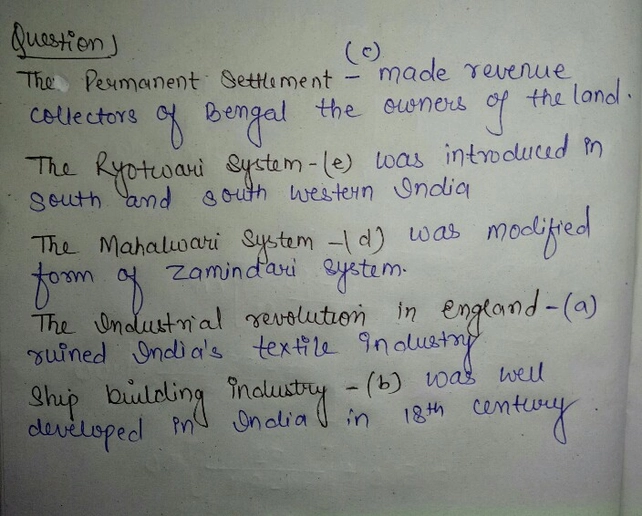 Question)
(c)
The Permanent Settlement - made revenue
collectors of Bengal the owners of the land.
The Ryotwari System-(e) was introduced in
South and south western India
The Mahalwari System -(d) was modified
form of zamindari system.
The Industrial revolution in england-(a)
ruined India's textile industry
Ship building industry -(b) was well
developed in India in 18th century.